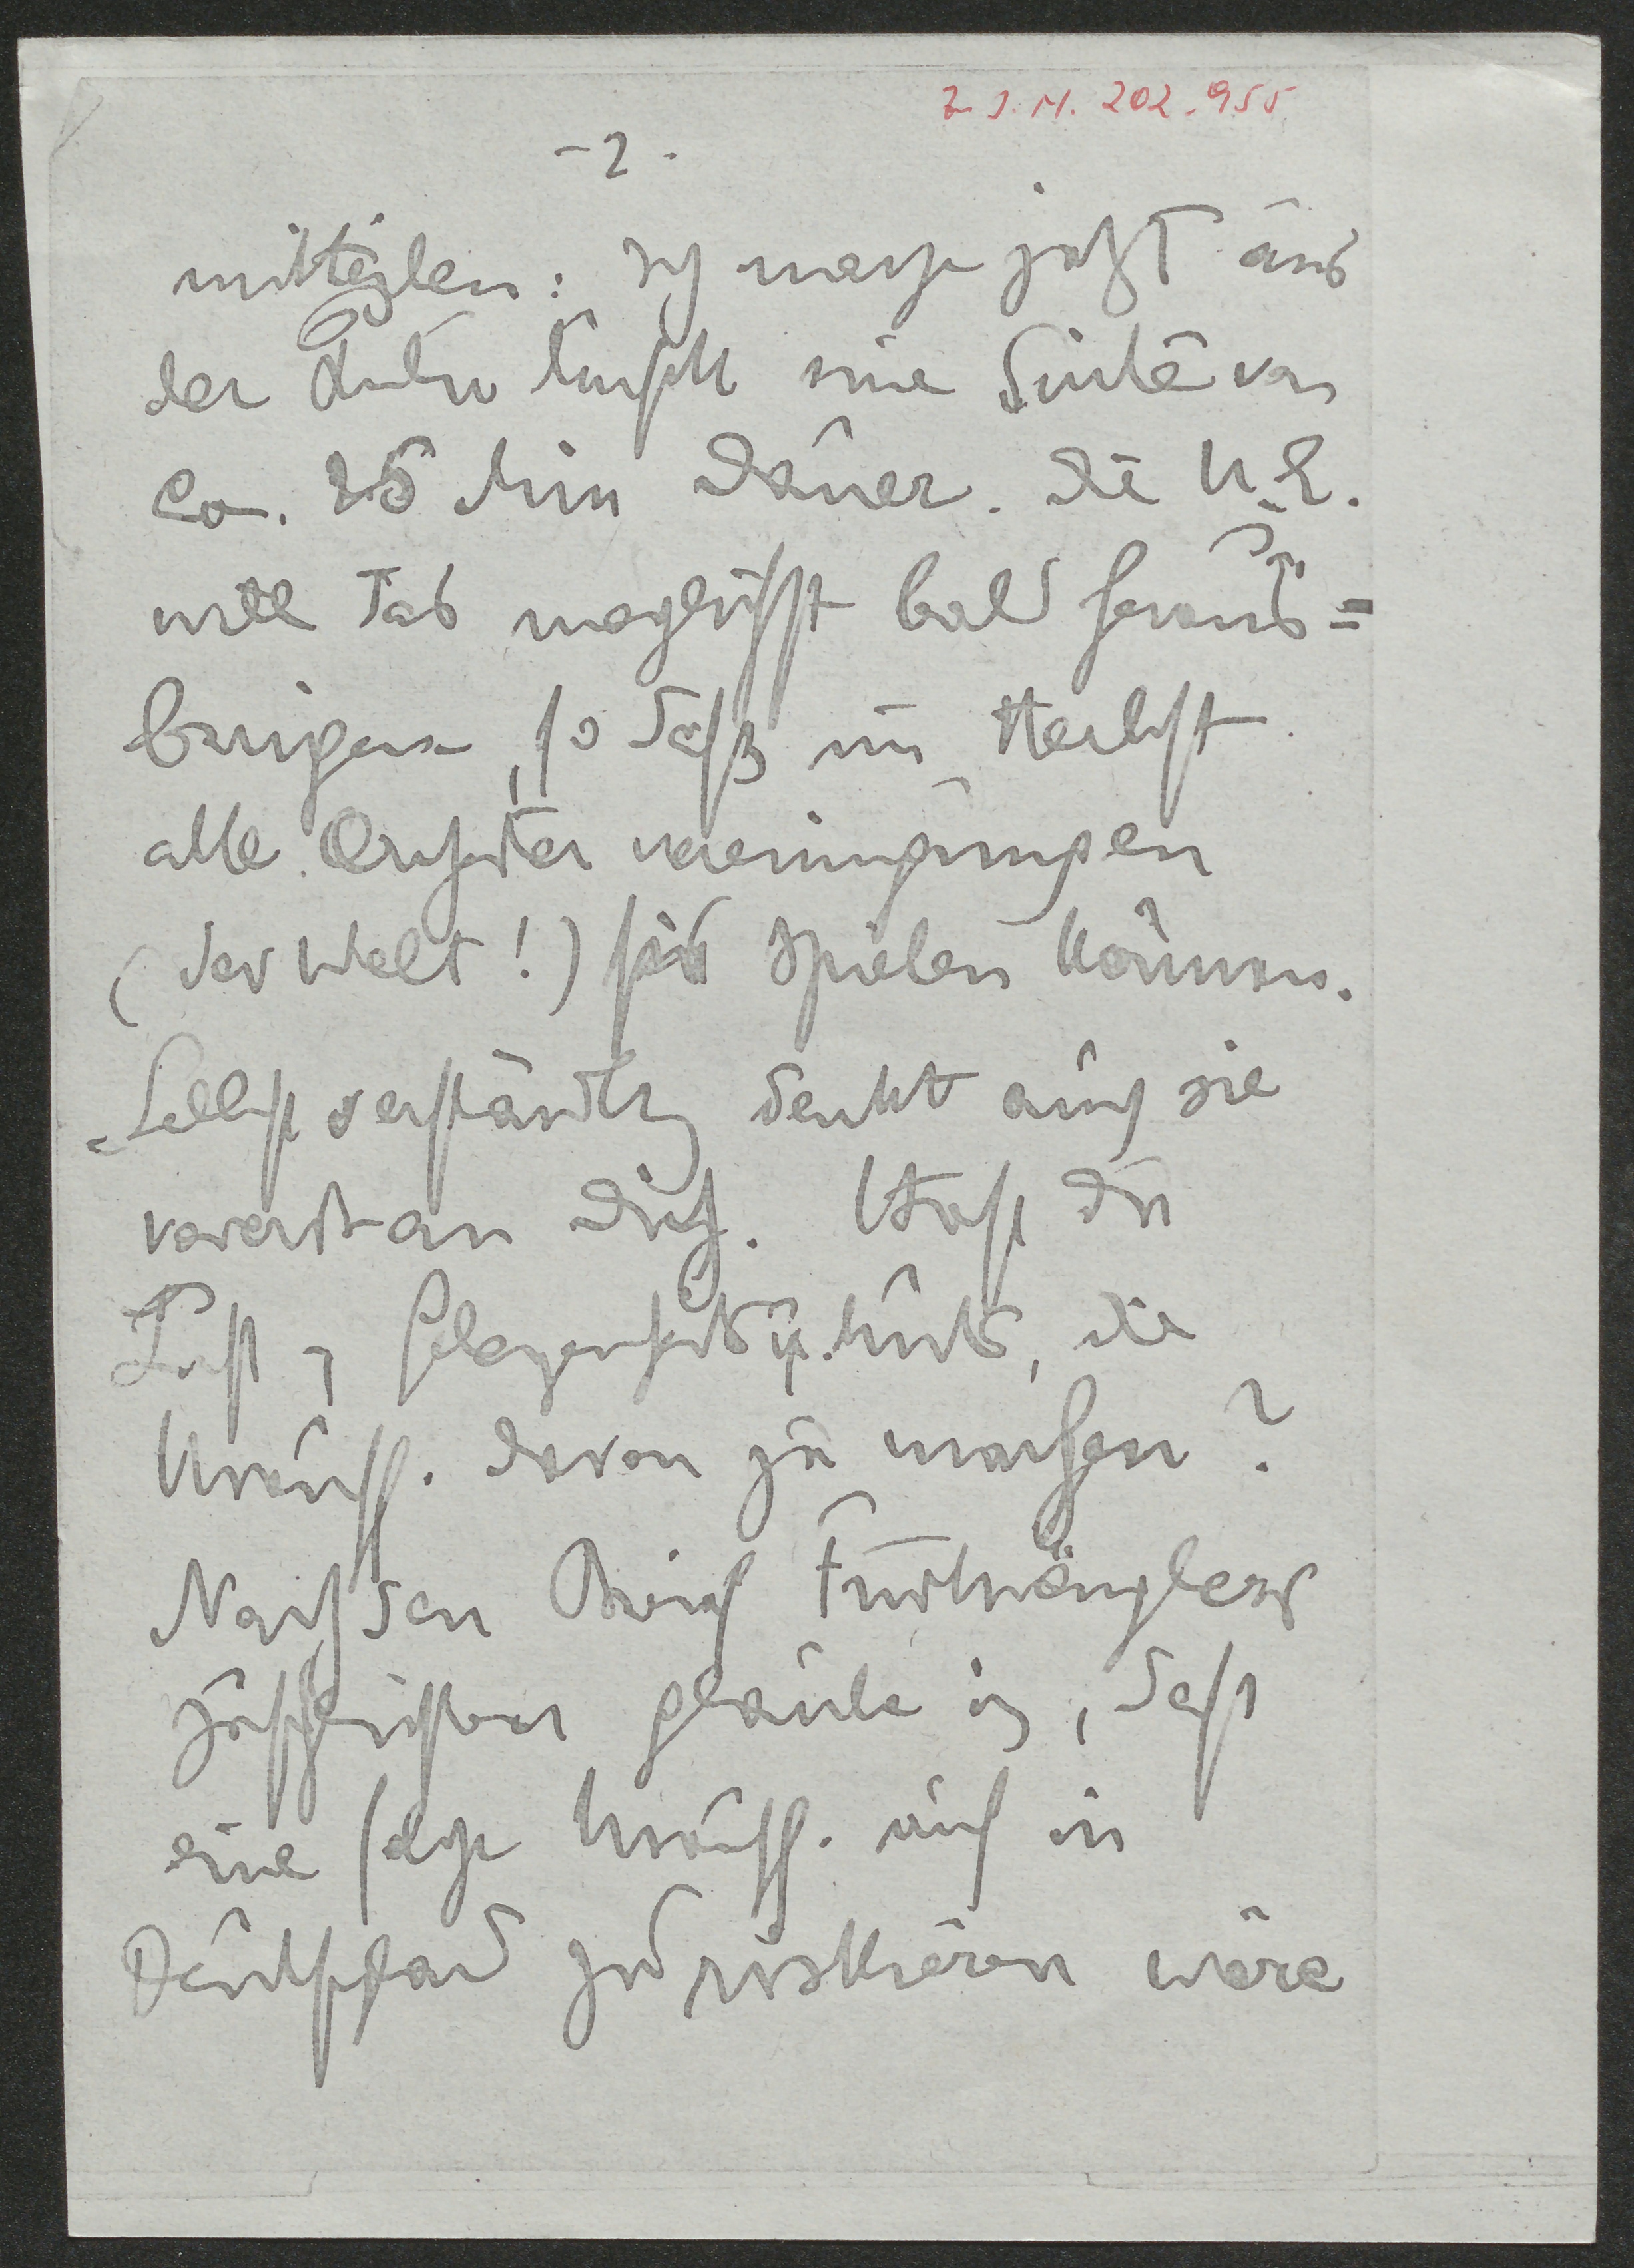 Z. J. N. 202.955
- 2 -
mitteilen: Ich mache jetzt aus
der Lulu Musik eine Suite von
Ca. 25 Min Dauer. Die U.E.
will das möglichst bald heraus=
bringen, so daß im Herbst
alle Orchestervereinigungen
(der Welt!) sie spielen können.
Selbstverständlich denkt auch sie
vorerst an Dich. Hast Du
Lust, Gelegenheit u. Mut, die
Urauff. davon zu machen?
Nach dem Brief Furtwänglers
zu schließen glaube ich, daß
eine solche Urauff. auch in
Deutschland zu riskieren wäre